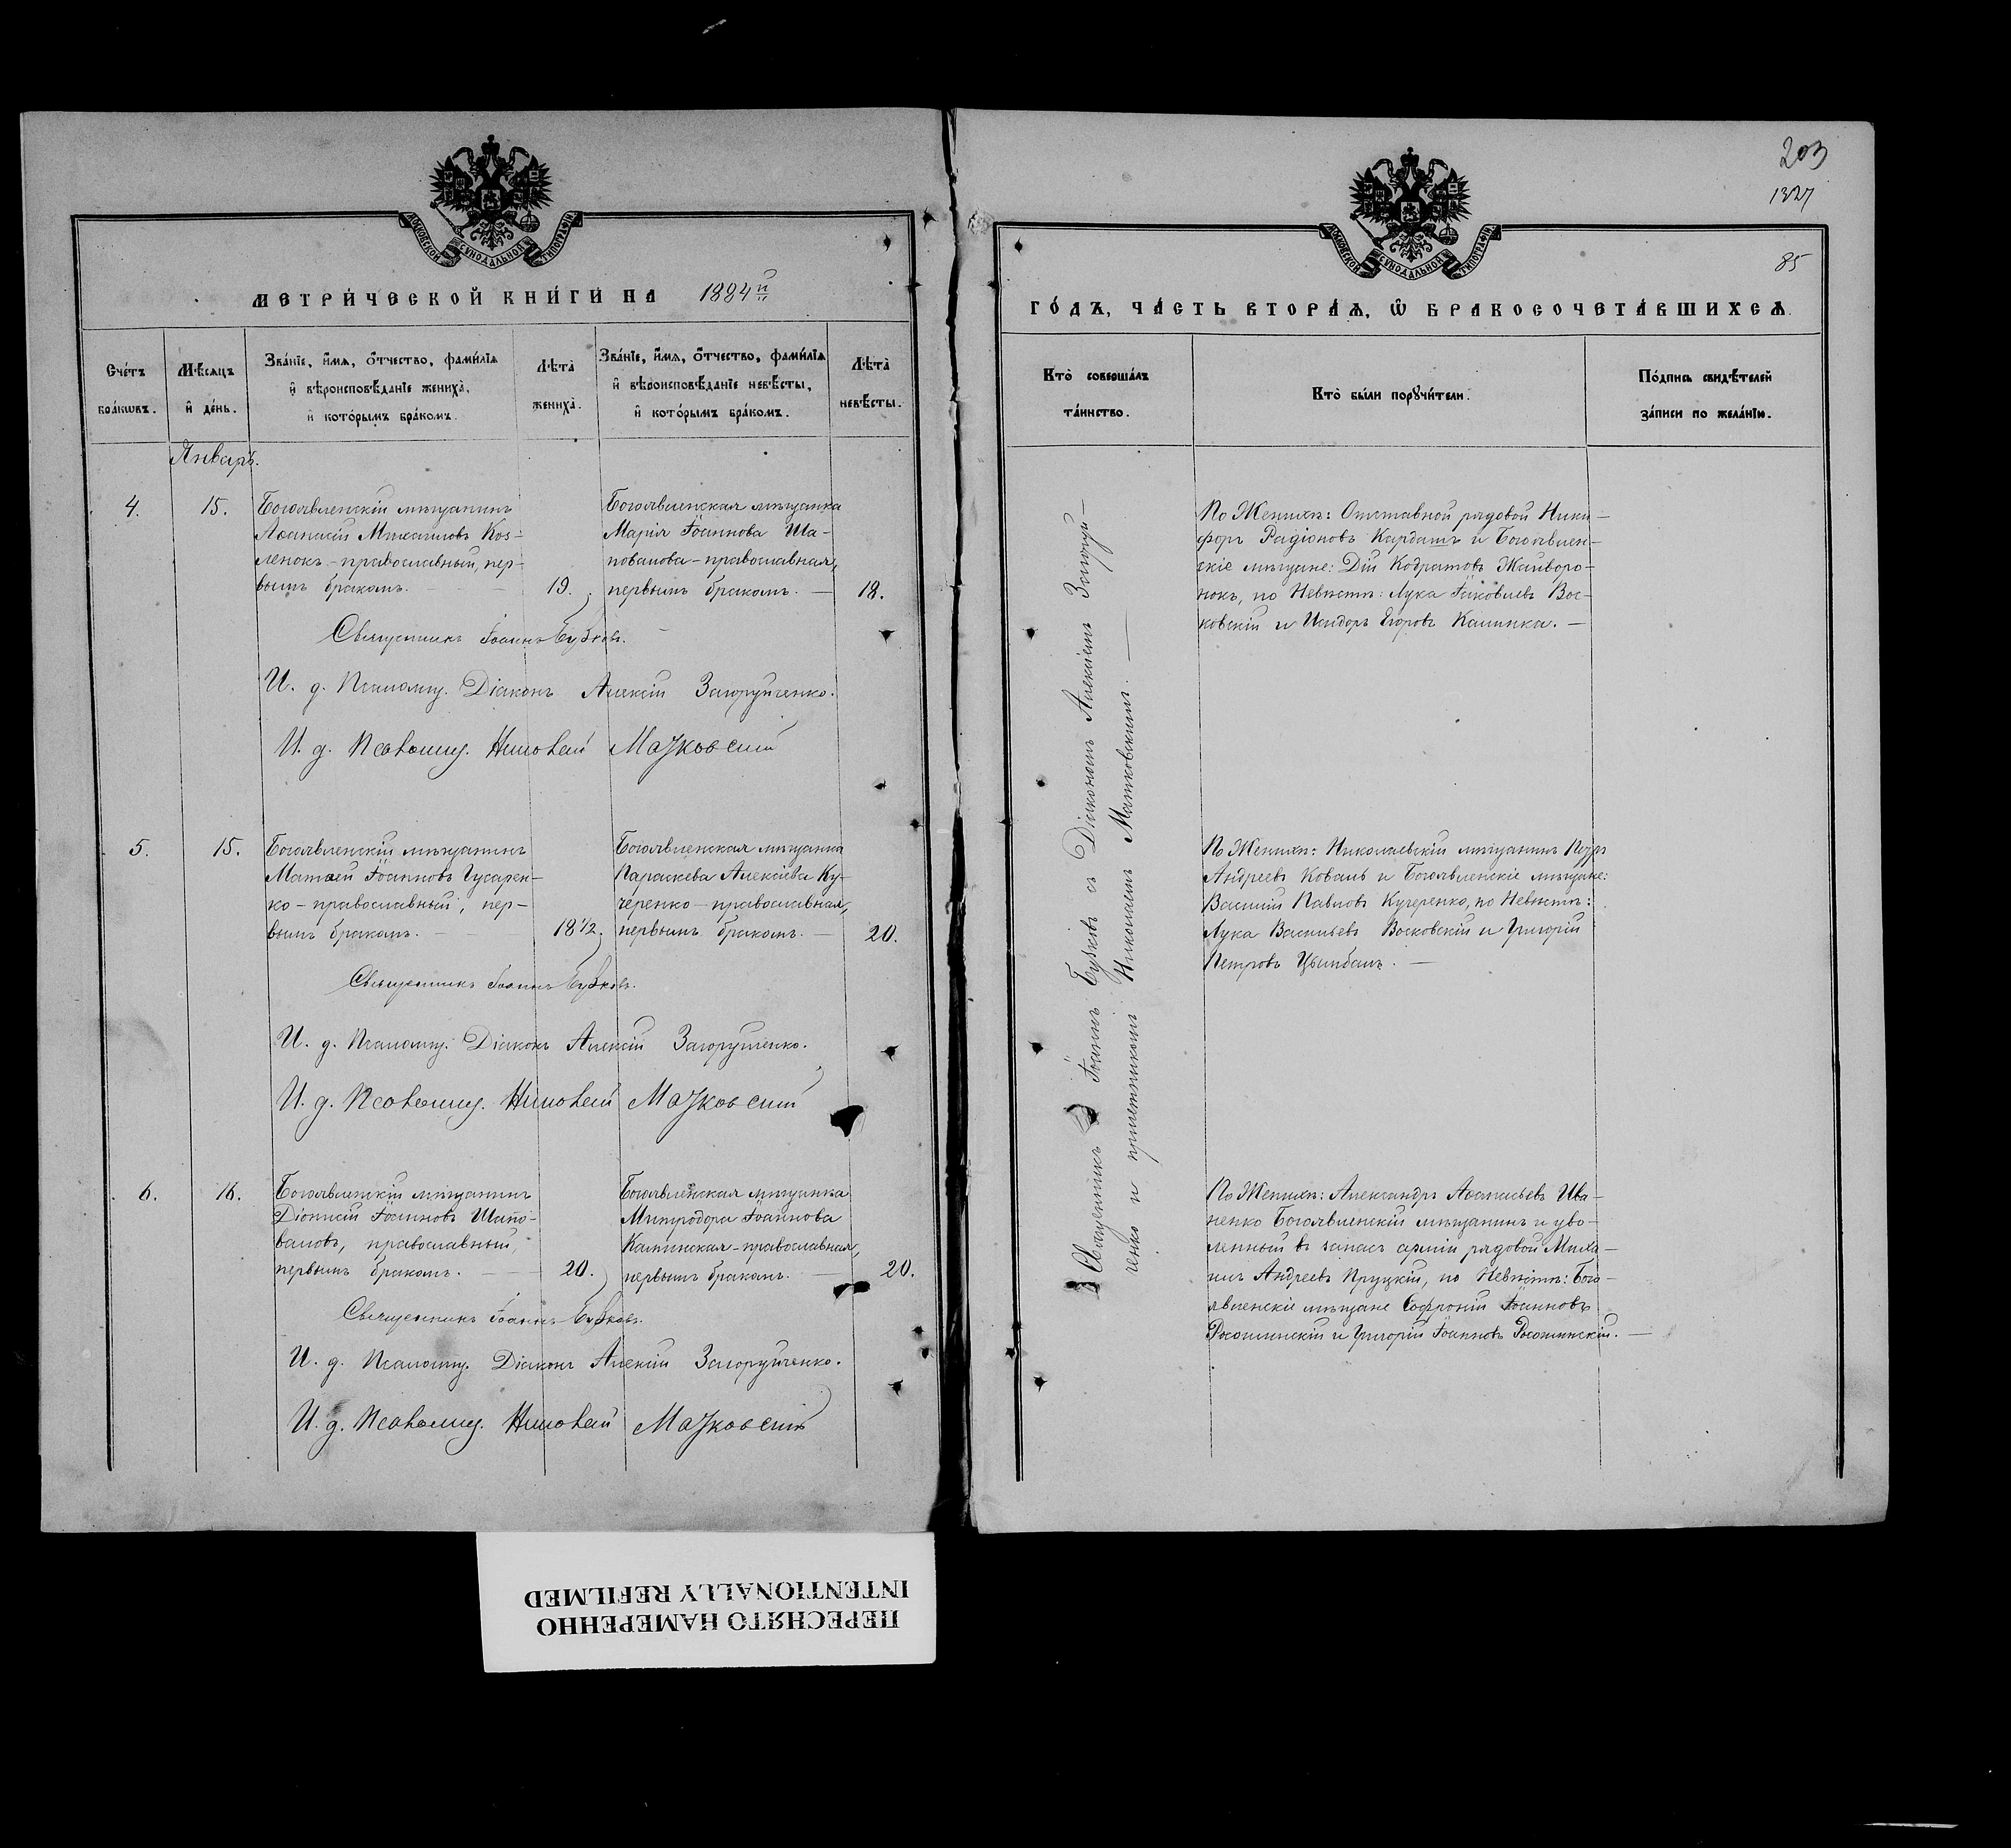 МОСКОВСКОЙ СѴНОДАЛЬНОЙ ТИПОГРАФІИ
МЕТРИ́ЧЕСКОЙ КНИ́ГИ НА 1884й
Сче́тъ бра́кωвъ.
Мѣ́сяцъ и҆ де́нь.
Зва́нїе, и҆́мѧ, ѻ҆́тчество, фами́лїѧ и҆ вѣроисповѣ́данїе жениха̀, и҆ кото́рымъ бра́комъ.
Лѣ́та̀ жениха̀.
Зва́нїе, и҆́мѧ, ѻ҆́тчество, фами́лїѧ и҆ вѣроисповѣ́данїе невѣ́сты, и҆ кото́рымъ бра́комъ.
Лѣ́та̀ невѣ́сты.
Январь.
4.
15.
Богоявленскій мѣщанинъ
Аѳанасій Михаиловъ Коз-
ленокъ - православный, пер-
вымъ бракомъ.
19.
Богоявленская мѣщанка
Марія Іоаннова Ша-
повалова - православная,
первымъ бракомъ. —
18.
Священникъ Іоаннъ Бубковъ.
И. д. Псаломщ. Діаконъ Алексій Загоруйченко.
И. д. Псаломщ. Николай Матковскій
5.
15.
Богоявленскій мѣщанинъ
Матѳей Іоанновъ Гусарен-
ко - православный, пер-
вымъ бракомъ. —
18 1/2.
Богоявленская мѣщанка
Параскева Алексіева Ку-
черенко - православная,
первымъ бракомъ. —
20.
Священникъ Іоаннъ Бубковъ.
И. д. Псаломщ. Діаконъ Алексій Загоруйченко.
И. д. Псаломщ. Николай Матковскій
6.
16.
Богоявленскій мѣщанинъ
Діонисій Іоанновъ Шапо-
валовъ, православный,
первымъ бракомъ. —
20.
Богоявленская мѣщанка
Митродора Іоаннова
Калинская - православная,
первымъ бракомъ. —
20.
Священникъ Іоаннъ Бубковъ.
И. д. Псаломщ. Діаконъ Алексій Загоруйченко.
И. д. Псаломщ. Николай Матковскій
203
1327
85
МОСКОВСКОЙ СѴНОДАЛЬНОЙ ТИПОГРАФІИ
ГО́ДЪ, ЧА́СТЬ ВТОРА́Ѧ, Ѡ҆ БРАКОСОЧЕТА́ВШИХСѦ.
Кто̀ соверша́лъ та́инство.
Кто̀ бы́ли порꙋчи́тели.
По́дпись свидѣ́телей за́писи по жела́нїю.
Священникъ Іоаннъ Бубковъ съ Діакономъ Алексіемъ Загоруй-
ченко и причетникомъ Николаемъ Матковскимъ. —
По Женихѣ: Отставной рядовой Ники-
форъ Радіоновъ Кардашъ и Богоявлен-
скіе мѣщане: Дій Кодратовъ Жайворо-
нокъ, по Невѣстѣ: Лука Іаковлевъ Вос-
ковскій и Исидоръ Егоровъ Калинка. —
По Женихѣ: Николаевскій мѣщанинъ Петръ
Андреевъ Коваль и Богоявленскіе мѣщане:
Василій Павловъ Кучеренко, по Невѣстѣ:
Лука Васильевъ Восковскій и Григорій
Петровъ Цымбалъ. —
По Женихѣ: Александръ Аѳанасьевъ Ива-
ненко Богоявленскій мѣщанинъ и уво-
ленный въ запасъ арміи рядовой Миха-
илъ Андреевъ Пруцкій, по Невѣстѣ: Бого-
явленскіе мѣщане Софроній Іоанновъ
и Григорій Іоанновъ
ПЕРЕСНЯТО НАМЕРЕННО
INTENTIONALLY REFILMED